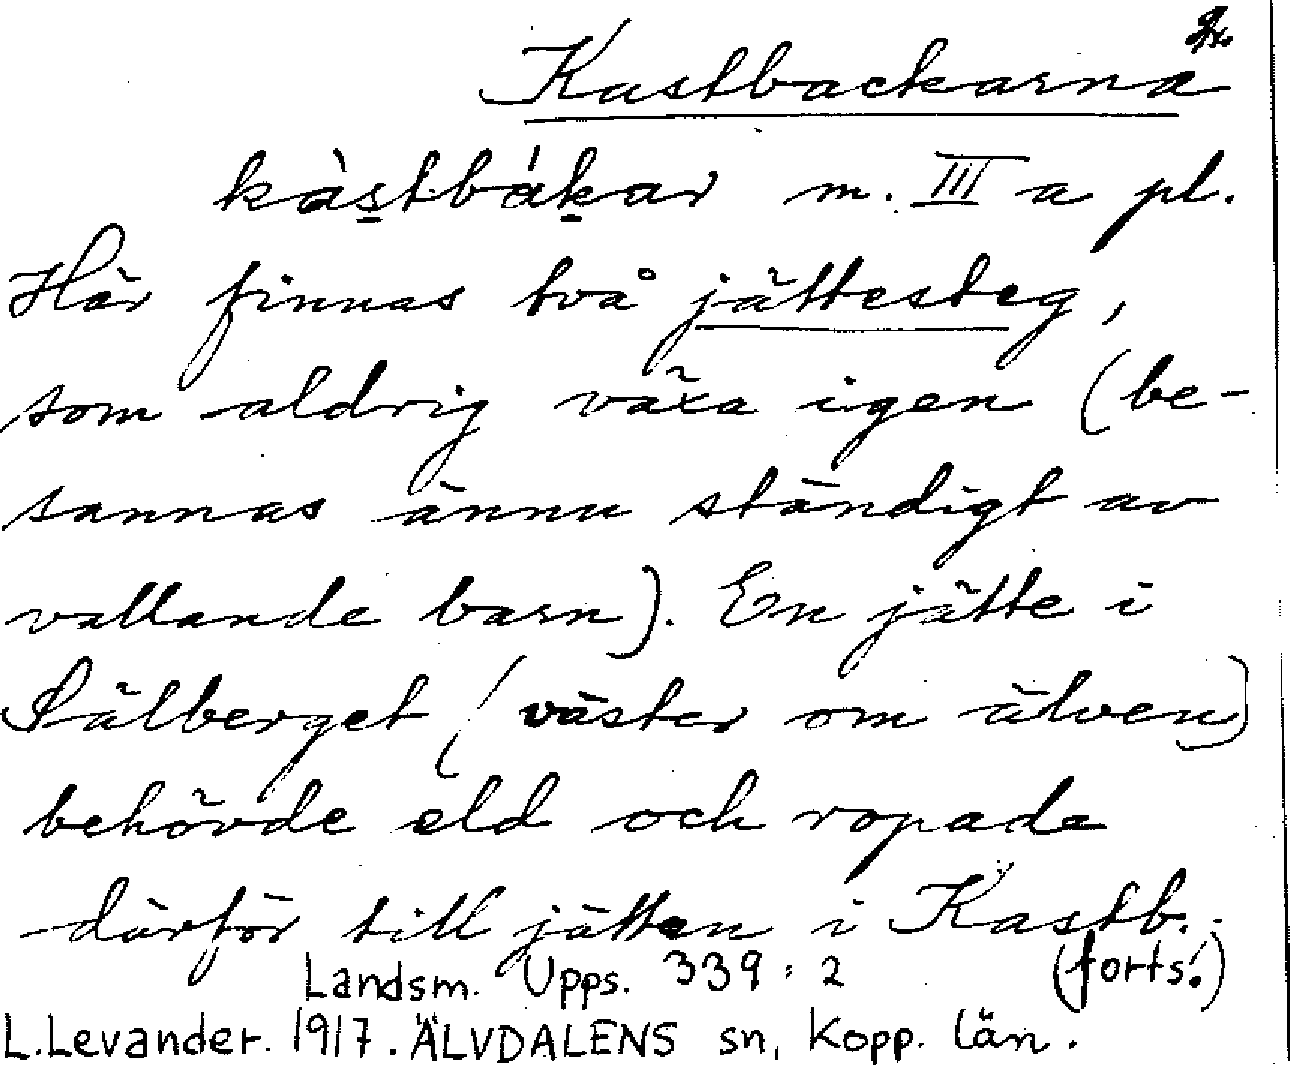 2x.
Kastbackarna
kàstbákar m. III a pl.
Här finnas två jättesteg,
som aldrig växa igen (be-
sannas ännu ständigt av
vallande barn). En jätte i
Sälberget (väster om älven)
behövde eld och ropade
därför till jätten i Kastb.:
Landsm. Upps. 339:2 (forts.)
L. Levander. 1917. ÄLVDALENS sn, Kopp. län.